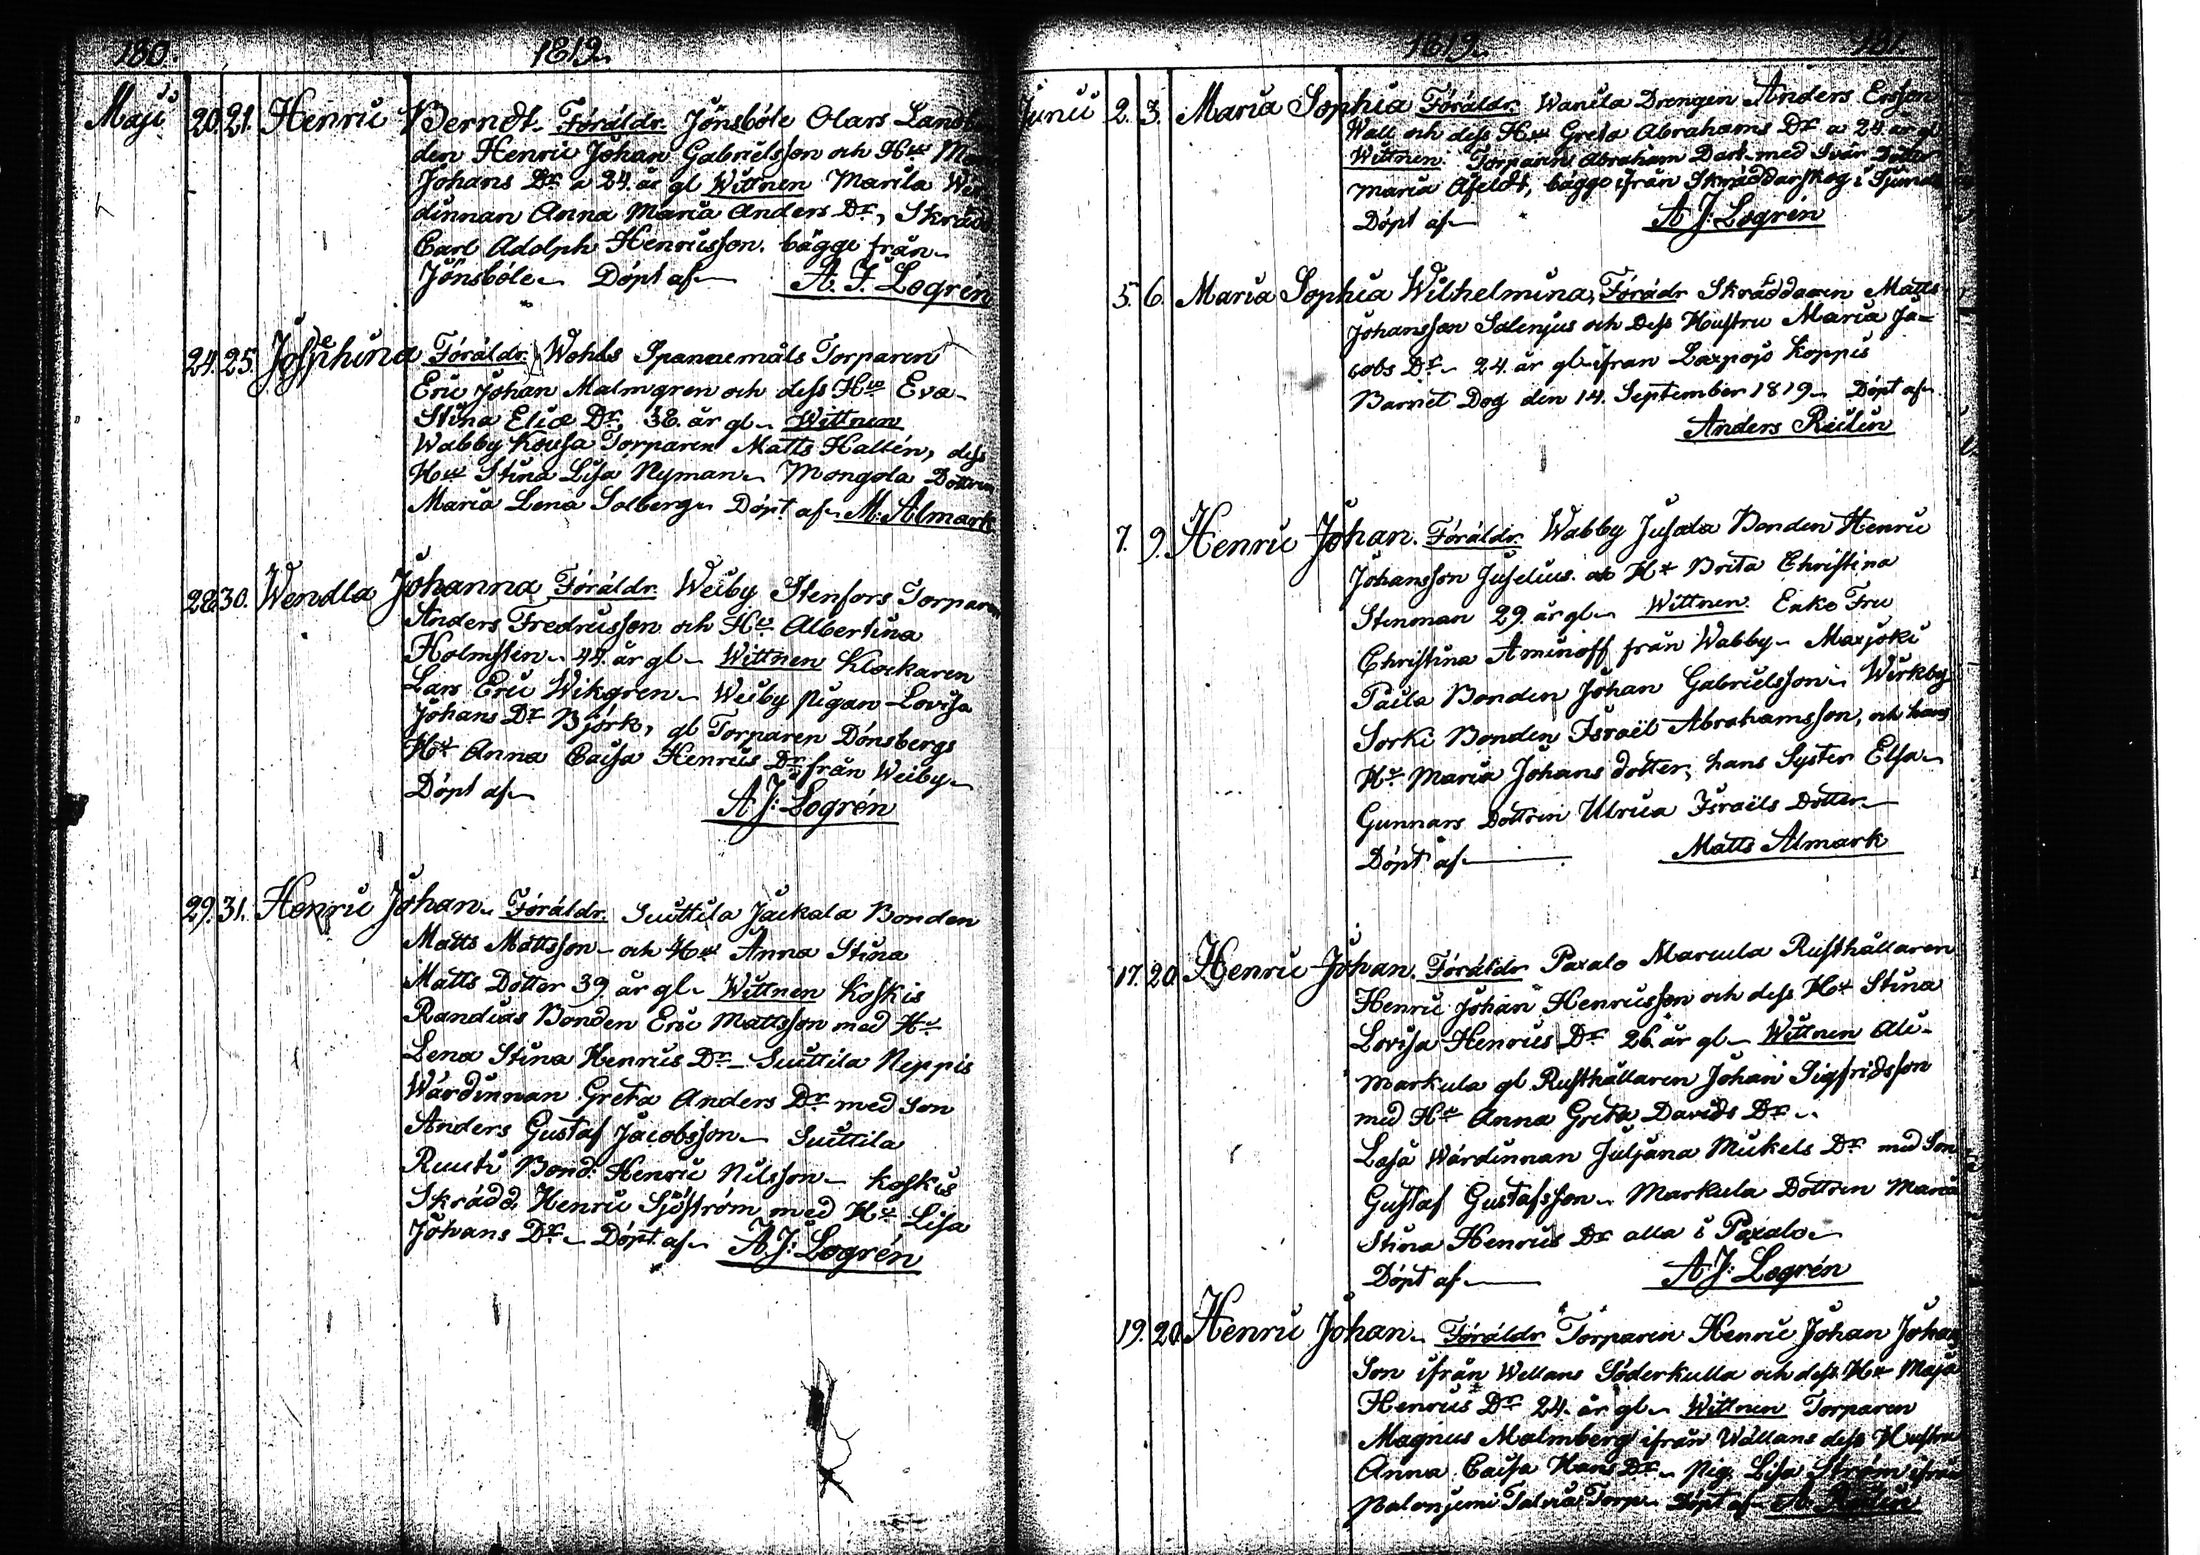 180.
1819.
Maji 20. 21. Henric Berndt. Föräldr. Jönsböle Olars Landb
den Henric Johan Gabrielsson och Hu
Johans Dr a 24. år gl Wittnen Marila Wär
dinnan Anna Maria Anders Dr, Skrädd
Carl Adolph Henricsson. bägge från
Jönsböle Döpt af A. J. Logren
24. 25. Josephina Föräldr. Wohls Torparen
Eric Johan Malmgren och dess Hu Eva
Stina Elia Dr. 38. år gl Wittnen
Wabby Torparen Matts Hallén, dess
Hu Stina Lisa Nyman Mongola Dottren
Maria Lena Solberg Döpt af M. Almark
28. 30. Wendla Johanna Föräldr. Weiby Stenfors Torparen
Anders Fredricsson och Hu Albertina
Holmsten 44. år gl Wittnen Klockaren
Lars Eric Wikgren Weiby pigan Lovisa
Johans Dr Björk, gl Torparen Dönsbergs
Hu Anna Caisa Henrics Dr från Weiby
Döpt af A J: Logrén
29. 31. Henric Johan Föräldr. Suittila Jackala Bonden
Matts Mattsson och Hu Anna Stina
Matts Dotter 39. år gl Wittnen Koskis
Randias Bonden Eric Mattsson med Hu
Lena Stina Henrics Dr Suittila Neppis
Wärdinnan Greta Anders Dr med Son
Anders Gustaf Jacobsson Suittila
Ruuti Bond. Henric Nilsson Koskis
Skrädd. Henric Sjöström med Hu Lisa
Johans Dr Döpt af A J: Logrén
1819. 181
Junii 2. 3. Maria Sophia Föräldr. Wanila Drengen Anders Ersson
Wall och dess Hu Greta Abrahams Dr a 24. år gl
Wittnen Torparen Abraham Dark med Svär Dotter
Maria Afeldt, bägge ifrån Skräddarskog i Sjund
Döpt af A J: Logrén
5. 6. Maria Sophia Wilhelmina, Förädr Skräddaren Matts
Johansson Salenjus och Dess Hustru Maria Ja=
cobs Dr 24. år gl ifran Laxpojo Koppis
Barnet Dog den 14. September 1819 Döpt af
Anders Reilin
7. 9. Henric Johan. Föräldr. Wabby Jusala Bonden Henric
Johansson Juselius. Hu Brita Christina
Stenman 29. år gl Wittnen. Enke Fru
Christina Aminoff från Wabby Marjoki
Paila Bonden Johan Gabrielsson Wirkby
Sorki Bonden Israël Abrahamsson, och hans
Hu Maria Johans dotter, hans Syster Elsa
Gunnars Dottren Ulrica Israëls Dotter
Döpt af Matts Almark
17. 20. Henric Johan. Föräldr Paxalo Marcula Rusthållaren
Henric Johan Henricsson och dess Hu Stina
Lovisa Henrics Dr 26. år gl Wittnen Ali
markula gl Rusthållaren Johan Sigfridsson
med Hu Anna Greta Davids Dr
Lasa Wärdinnan Juljana Mickels Dr med Son
Gustaf Gustafsson Markula Dottren Maria
Stina Henrics Dr alla i Paxalo
Döpt af A J: Logrén
19. 20. Henric Johan Föräldr Torparen Henric Johan Johan
Son ifrån Wellans Söderkulla och dess Hu Maja
Henrics Dr 24. år gl Wittnen Torparen
Magnus Malmberg ifrån Wällans dess Hustru
Anna Caisa Hans Dr pig. Lisa Ström ifrån
Döpt af A. Reilin